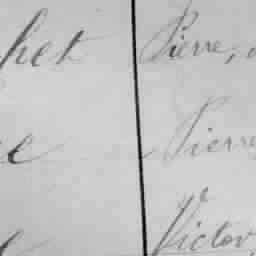 het Pierre,
e Pierre
Victor